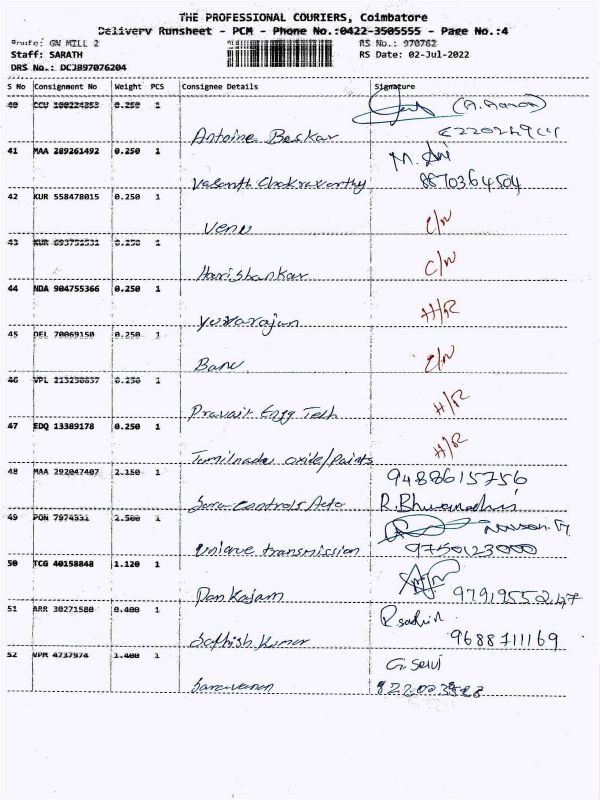 THE PROFESSIONAL COURIERS, Coimbatore
Delivery Runsheet - PCM - Phone No.:0422-3505555 - Page No.:4
Route: GN MILL 2
RS No.: 970762
Staff: SARATH
RS Date: 02-Jul-2022
DRS No.: DCJB97076204
S No Consignment No Weight PCS Consignee Details Signature
40 CCU 0.250 1
(A. Aaron)
Antoine Baskar
41 MAA 289261492 0.250 1
M.
Vasanth Chakravarthy 8870364504
42 KUR 558478015 0.250 1
Venu C/N
43 KUR 0.250 1
Harishankar C/N
44 NDA 904755366 0.250 1
Yuvarajan H/R
45 DEL 70069150 0.250 1
Banu C/N
46 VPL 0.250 1
Pravair Engg Tech H/R
47 EDQ 13389178 0.250 1
Tamilnadu oxide/paints H/R
48 MAA 292047407 2.150 1
9488615756
Controls Auto R.
49 PON 7974931 2.500 1
Unique transmission 9750123000
50 TCG 40158848 1.120 1
Pankajam 9791955247
51 ARR 30271580 0.400 1
Sathish Kumar 9688711169
52 VPM 4737974 1.400 1
G. Selvi
Saravanan